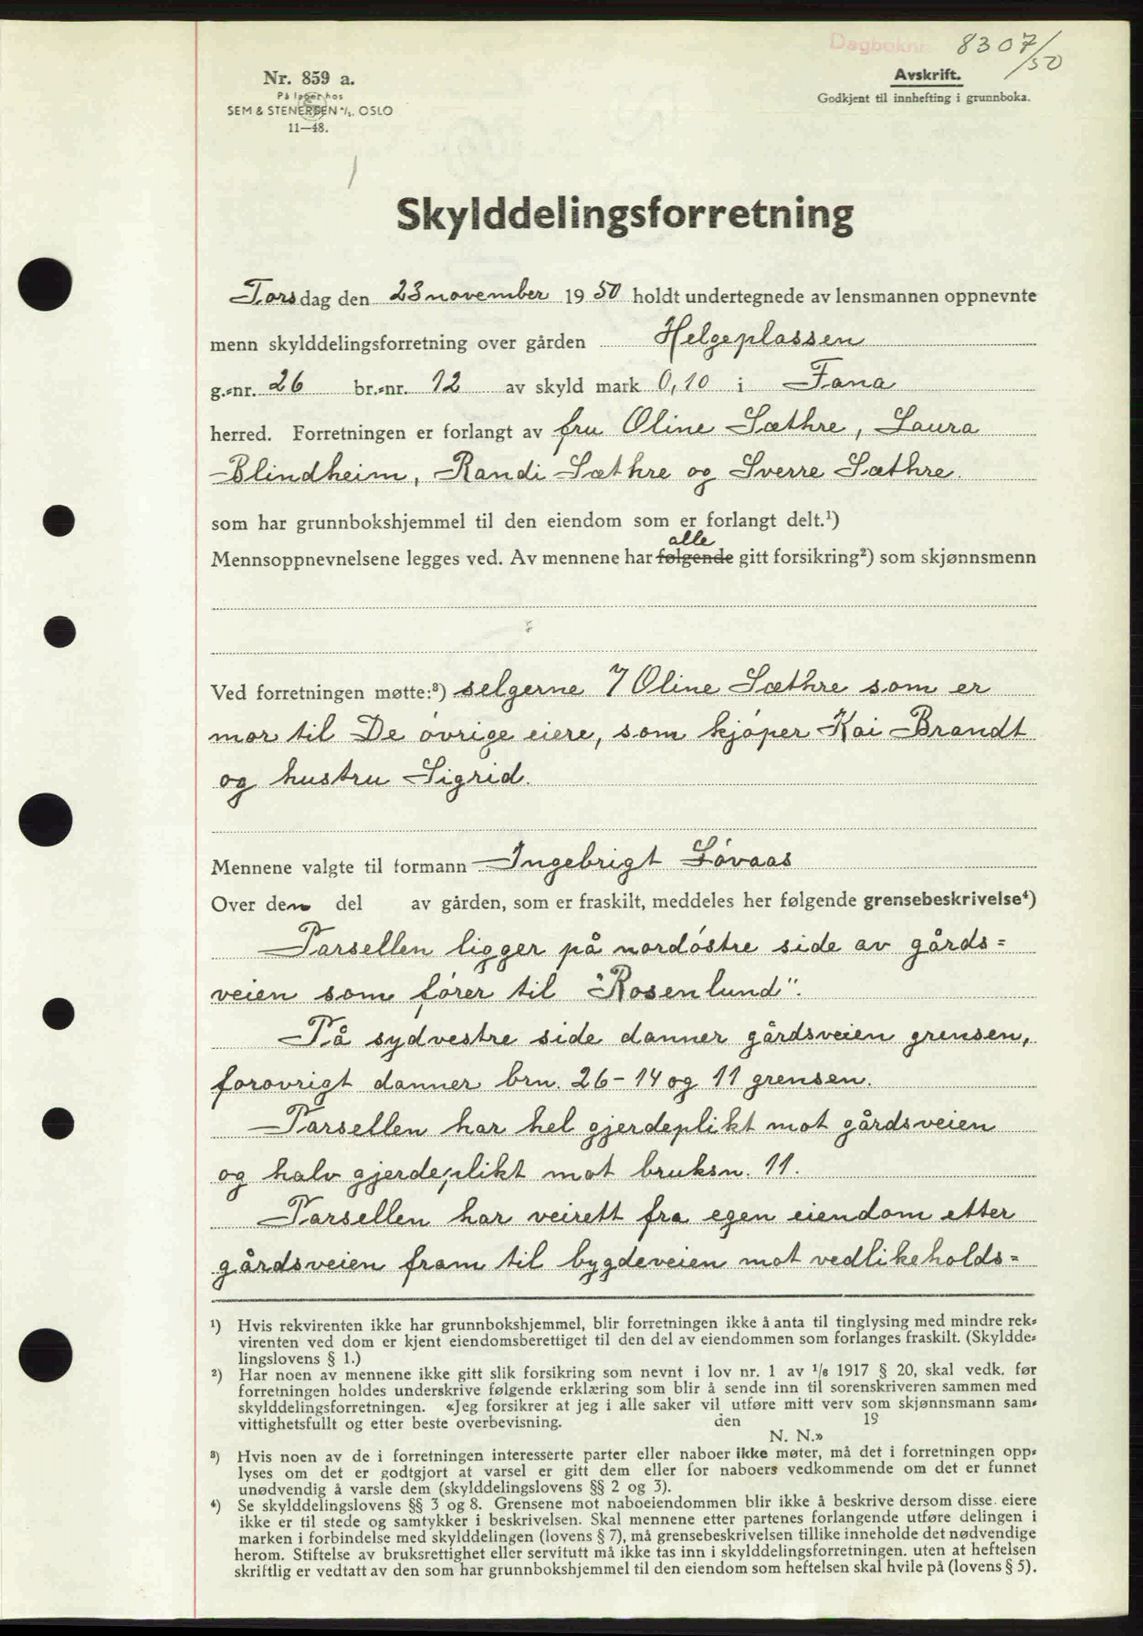 Dagboknr. 8307/50
Nr. 859 a.
På lager hos
SEM & STENERSEN A/S. OSLO
11—48.
Avskrift.
Godkjent til innhefting i grunnboka.
Skylddelingsforretning
Torsdag den 23 november 1950 holdt undertegnede av lensmannen oppnevnte
menn skylddelingsforretning over gården Helgeplassen
g.-nr. 26 br.-nr. 12 av skyld mark 0,10 i Fana
herred. Forretningen er forlangt av fru Oline Sæthre, Laura
Blindheim, Randi Sæthre og Sverre Sæthre.
som har grunnbokshjemmel til den eiendom som er forlangt delt.¹)
alle
Mennsoppnevnelsene legges ved. Av mennene har følgende gitt forsikring²) som skjønnsmenn
Ved forretningen møtte:³) selgerne v/ Oline Sæthre som er
mor til De øvrige eiere, som kjøper Kai Brandt
og hustru Sigrid.
Mennene valgte til formann Ingebrigt Løvaas
Over den del av gården, som er fraskilt, meddeles her følgende grensebeskrivelse⁴)
Parsellen ligger på nordøstre side av gårds=
veien som fører til "Rosenlund".
På sydvestre side danner gårdsveien grensen,
forøvrigt danner brn. 26-14 og 11 grensen.
Parsellen har hel gjerdeplikt mot gårdsveien
og halv gjerdeplikt mot bruksn. 11.
Parsellen har veirett fra egen eiendom etter
gårdsveien fram til bygdeveien mot vedlikeholds=
¹) Hvis rekvirenten ikke har grunnbokshjemmel, blir forretningen ikke å anta til tinglysing med mindre rek-
virenten ved dom er kjent eiendomsberettiget til den del av eiendommen som forlanges fraskilt. (Skyldde-
lingslovens § 1.)
²) Har noen av mennene ikke gitt slik forsikring som nevnt i lov nr. 1 av 1/6 1917 § 20, skal vedk. før
forretningen holdes underskrive følgende erklæring som blir å sende inn til sorenskriveren sammen med
skylddelingsforretningen. «Jeg forsikrer at jeg i alle saker vil utføre mitt verv som skjønnsmann sam-
vittighetsfullt og etter beste overbevisning. den 19
N. N.»
³) Hvis noen av de i forretningen interesserte parter eller naboer ikke møter, må det i forretningen opp-
lyses om det er godtgjort at varsel er gitt dem eller for naboers vedkommende om det er funnet
unødvendig å varsle dem (skylddelingslovens §§ 2 og 3).
⁴) Se skylddelingslovens §§ 3 og 8. Grensene mot naboeiendommen blir ikke å beskrive dersom disse eiere
ikke er til stede og samtykker i beskrivelsen. Skal mennene etter partenes forlangende utføre delingen i
marken i forbindelse med skylddelingen (lovens § 7), må grensebeskrivelsen tillike inneholde det nødvendige
herom. Stiftelse av bruksrettighet eller servitutt må ikke tas inn i skylddelingsforretningen. uten at heftelsen
skriftlig er vedtatt av den som har grunnbokshjemmel til den eiendom som heftelsen skal hvile på (lovens § 5).